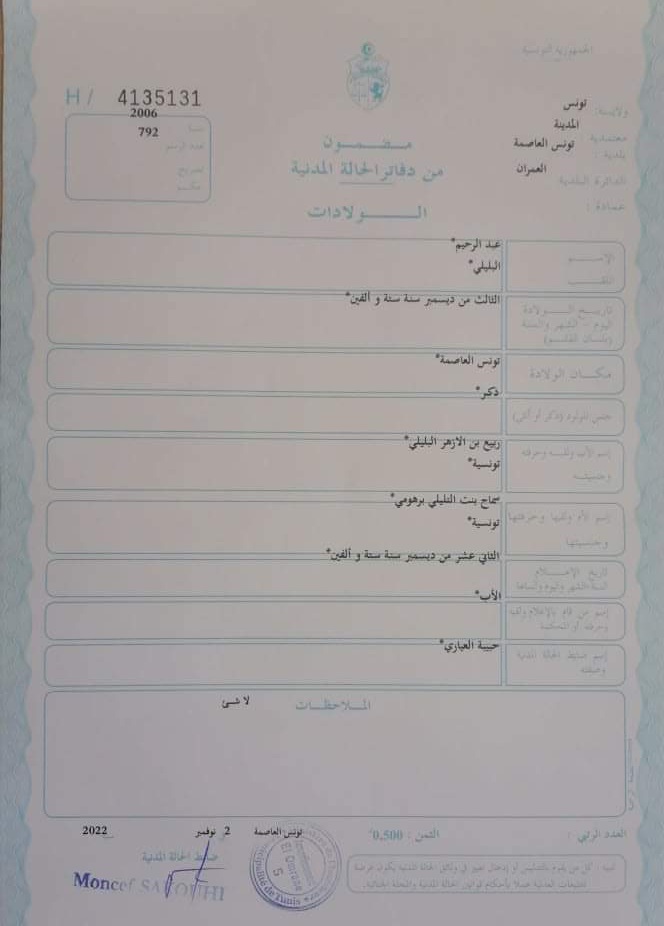 الجمهورية التونسية
H / 4135131
ولاية: تونس
معتمدية المدينة
بلدية: تونس العاصمة
الدائرة البلدية العمران
عمادة:
سنة 2006
عدد الرسم 792
مضمون
من دفاتر الحالة المدنية
الولادات
الإسم عبد الرحيم*
اللقب البليلي*
تاريخ الولادة الثالث من ديسمبر سنة ستة و ألفين*
اليوم - الشهر والسنة
(بلسان القلم)
مكان الولادة تونس العاصمة*
جنس المولود (ذكر أو أنثى) ذكر*
إسم الأب ولقبه وحرفته ربيع بن الازهر البليلي*
وجنسيته تونسية*
إسم الأم ولقبها وحرفتها سماح بنت التليلي برهومي*
وجنسيتها تونسية*
تاريخ الإعلام الثاني عشر من ديسمبر سنة ستة و ألفين*
إسم من قام بالإعلام ولقبه الأب*
وحرفته أو المحكمة
إسم ضابط الحالة المدنية حبيبة العياري*
وصفته
الملاحظات
لا شئ
العدد الرتبي :
الثمن : 0,500
تونس العاصمة 2 نوفمبر 2022
ضابط الحالة المدنية
Moncef
El Omrane
5
تنبيه : كل من يقوم بالتدليس أو إدخال تغيير في وثائق الحالة المدنية يكون عرضة
للتتبعات العدلية عملا بأحكام قوانين الحالة المدنية والمجلة الجنائية.